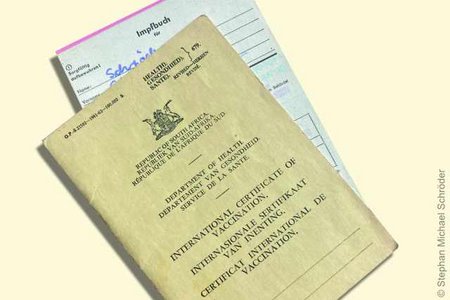 Impfbuch
für
Sorgfältig
aufbewahren!
G.P.-S.
HEALTH
GESONDHEIDS 479.
SANTÉ,
REVISED—HERSIEN
REVISE.
REPUBLIC OF SOUTH AFRICA.
REPUBLIEK VAN SUID-AFRIKA.
RÉPUBLIQUE DE L'AFRIQUE DU SUD.
DEPARTMENT OF HEALTH.
DEPARTEMENT VAN GESONDHEID.
SERVICE DE LA SANTÉ.
INTERNATIONAL CERTIFICATE OF
VACCINATION.
INTERNASIONALE SERTIFIKAAT
VAN INENTING.
CERTIFICAT INTERNATIONAL DE
VACCINATION.
© Stephan Michael Schröder